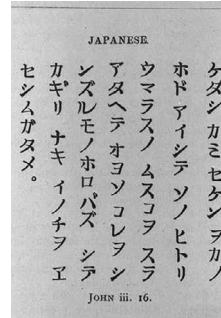 JAPANESE.
ケダシ カミ セケン ヲ カノ
ホド アイシテ ソノ ヒトリ
ウマラスノ ムスコヲ スラ
アタヘテ オヨソ コレヲ シ
ンズルモノ ホロバズ シテ
カギリ ナキ イノチヲ ヱ
セシムガタメ。
JOHN iii. 16.